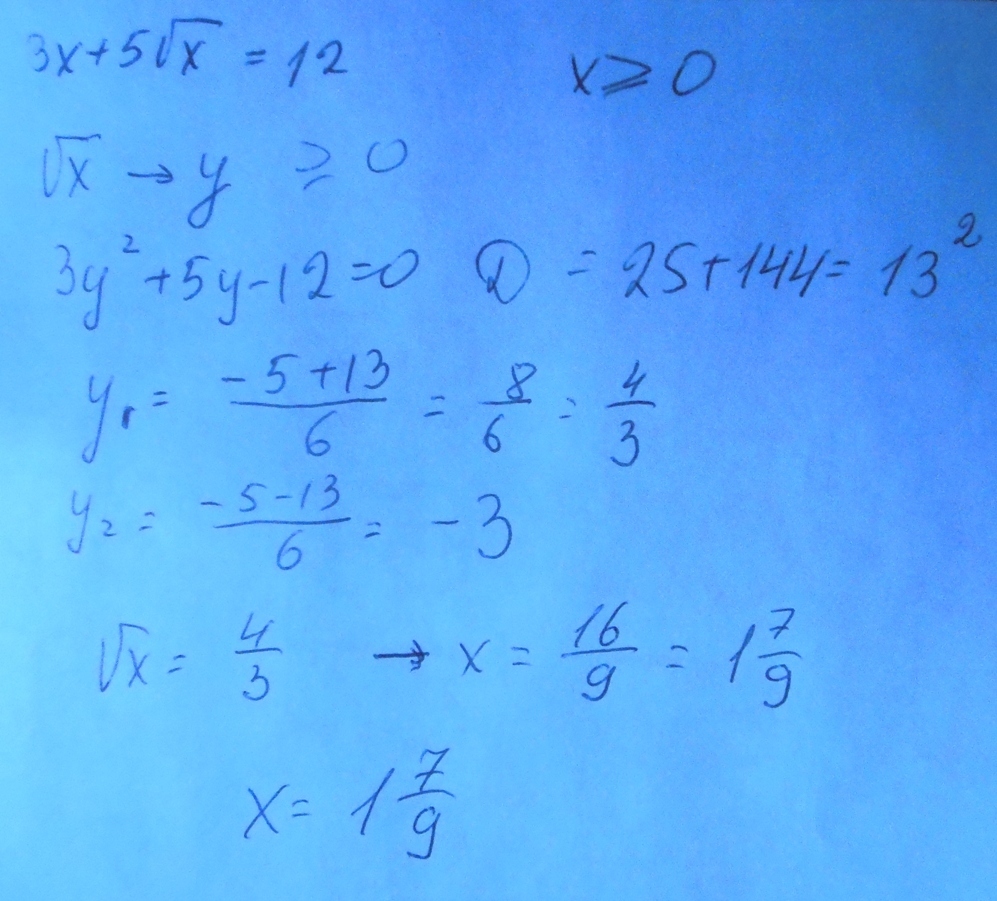 3x+5√x = 12 x ⩾ 0
√x → y ⩾ 0
3y²+5y-12=0 D = 25+144= 13²
y₁ = (-5+13)/6 = 8/6 = 4/3
y₂ = (-5-13)/6 = -3
√x = 4/3 → x = 16/9 = 1 7/9
x = 1 7/9